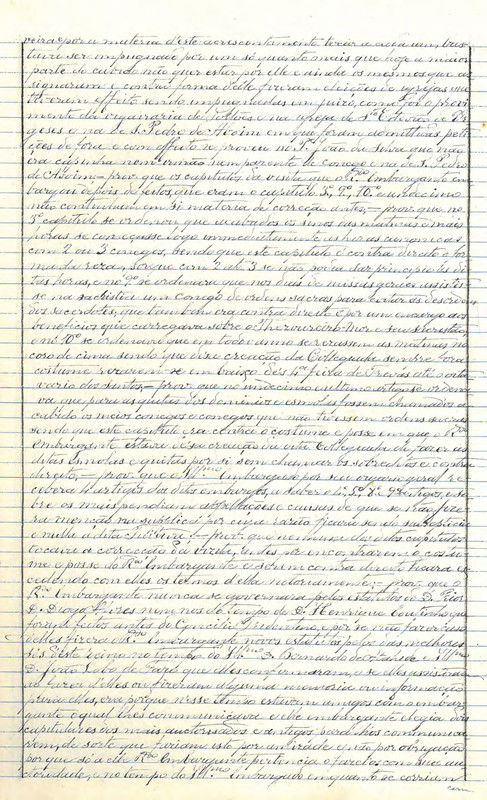 veira e por a materia d'este acrescentamento tocar a cada um bas-
tava ser impugnado por um só quanto mais que hoje a maior
parte do cabido não quer estar por elle e ainda os mesmos que as-
signaram e contra forma d'elle fizeram eleições de igrejas não
tiveram effeito sendo impugnadas em juizo, como foi o provi-
mento da vigararia de e na igreja de S.to Estevão de
e na de S. Pedro de em que foram admittidas peti-
ções de fora e com effeito se proveu no P.e João da Silva que não
era capinha nem irmão nem parente de Conego e na de S. Pedro
de prov. que os capitulos da visita que o R.do embargante em-
bargou depois de feitos que eram o capitulo 5.º, 9.º, 10.º e undecimo
não continham em si materia de correcção antes, — prov. que no
5.º capitulo se ordenou que acabados os sinos das matinas e mais
horas se começasse logo immediatamente as horas canonicas
com 2 ou 3 conegos, sendo que este capitulo é contra direito e for-
ma da reza, porque com 2 até 3 se não podia dar principio ás di-
tas horas, e no 9.º se ordenara que nos dias de missas geraes assistis-
se na sachristia um conego de ordens sacras para evitar as desordens
dos sacerdotes, que tambem era contra direito e por um encargo aos
beneficios que carregava sobre o Thezoureiro Mor e seu sachristão,
e no 10.º se ordenava que em todo o anno se rezassem as matinas no
coro de cima sendo que desde a creação da Collegiada sempre fora
costume rezarem-se em baixo des 4.ª feira de Trevas até oita-
vario dos Santos, — prov. que no undecimo e ultimo artigo se ordena-
va que para as quitas dos dominios e esmolas fossem chamados a
cabido os meios conegos e conegos que não tivessem ordens sacras
sendo que este capitulo era contra o costume e posse em que o R.do
embargante estava desde a creação da dita Collegiada de fazer as
ditas esmolas e quitas por si sem chamar os sobreditos e contra
direito, — prov. que o Ill.mo Embargado por seu vigario geral re-
cebera 4 artigos dos ditos embargos, a saber o 5.º 9.º artigos, e so-
bre os mais pendiam appellações e causas de que se não fize-
ra menção na supplica por cuja razão ficava sendo subrepticia
e nulla a dita — prov. que nenhum dos ditos capitulos
tocava a correcção da visita, antes por encontrarem o costu-
me e posse do R.do Embargante e serem contra direito ficara ex-
cedendo com elles os termos d'ella notoriamente; — prov. que o
R.do Embargante nunca se governara pelos estatutos do D. Prior
D. Diogo Pires nem nos do tempo de D. Henrique Coutinho que
foram feitos antes do Concilio Tridentino, e por se não fazer caso
d'elles fizera o R.do Embargante novos estatutos pelos das melhores
Sés d'este reino no tempo do Ill.mo D. Bernardo de e Ill.mo
D. João Lobo de Faro que elles confirmaram, e se elles assistiram
ao fazer d'elles ou fizeram alguma memoria ou informação
para elles, era porque nesse tempo estavam amigos com o embar-
gante o qual lhes communicava e elle embargante elegia dois
capitulares dos mais auctorisados e antigos para lh'os communica-
rem, de sorte que fariam isto por amizade e não por obrigação
porque só a elle R.do Embargante pertencia o fazel-os com sua au-
ctoridade, e no tempo do Ill.mo Embargado emquanto se corriam
com